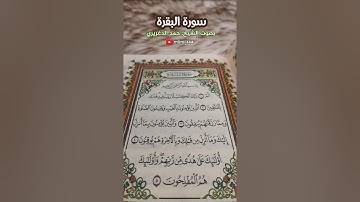 سورة البقرة
بصوت الشيخ: حمد الدغريري
الٓمٓ ١ ذَٰلِكَ ٱلْكِتَٰبُ لَا رَيْبَ فِيهِ هُدًى
لِّلْمُتَّقِينَ ٢ ٱلَّذِينَ يُؤْمِنُونَ بِٱلْغَيْبِ وَيُقِيمُونَ ٱلصَّلَوٰةَ
وَمِمَّا رَزَقْنَٰهُمْ يُنفِقُونَ ٣ وَٱلَّذِينَ يُؤْمِنُونَ بِمَآ أُنزِلَ
إِلَيْكَ وَمَآ أُنزِلَ مِن قَبْلِكَ وَبِٱلْءَاخِرَةِ هُمْ يُوقِنُونَ ٤
أُو۟لَٰٓئِكَ عَلَىٰ هُدًى مِّن رَّبِّهِمْ وَأُو۟لَٰٓئِكَ
هُمُ ٱلْمُفْلِحُونَ ٥